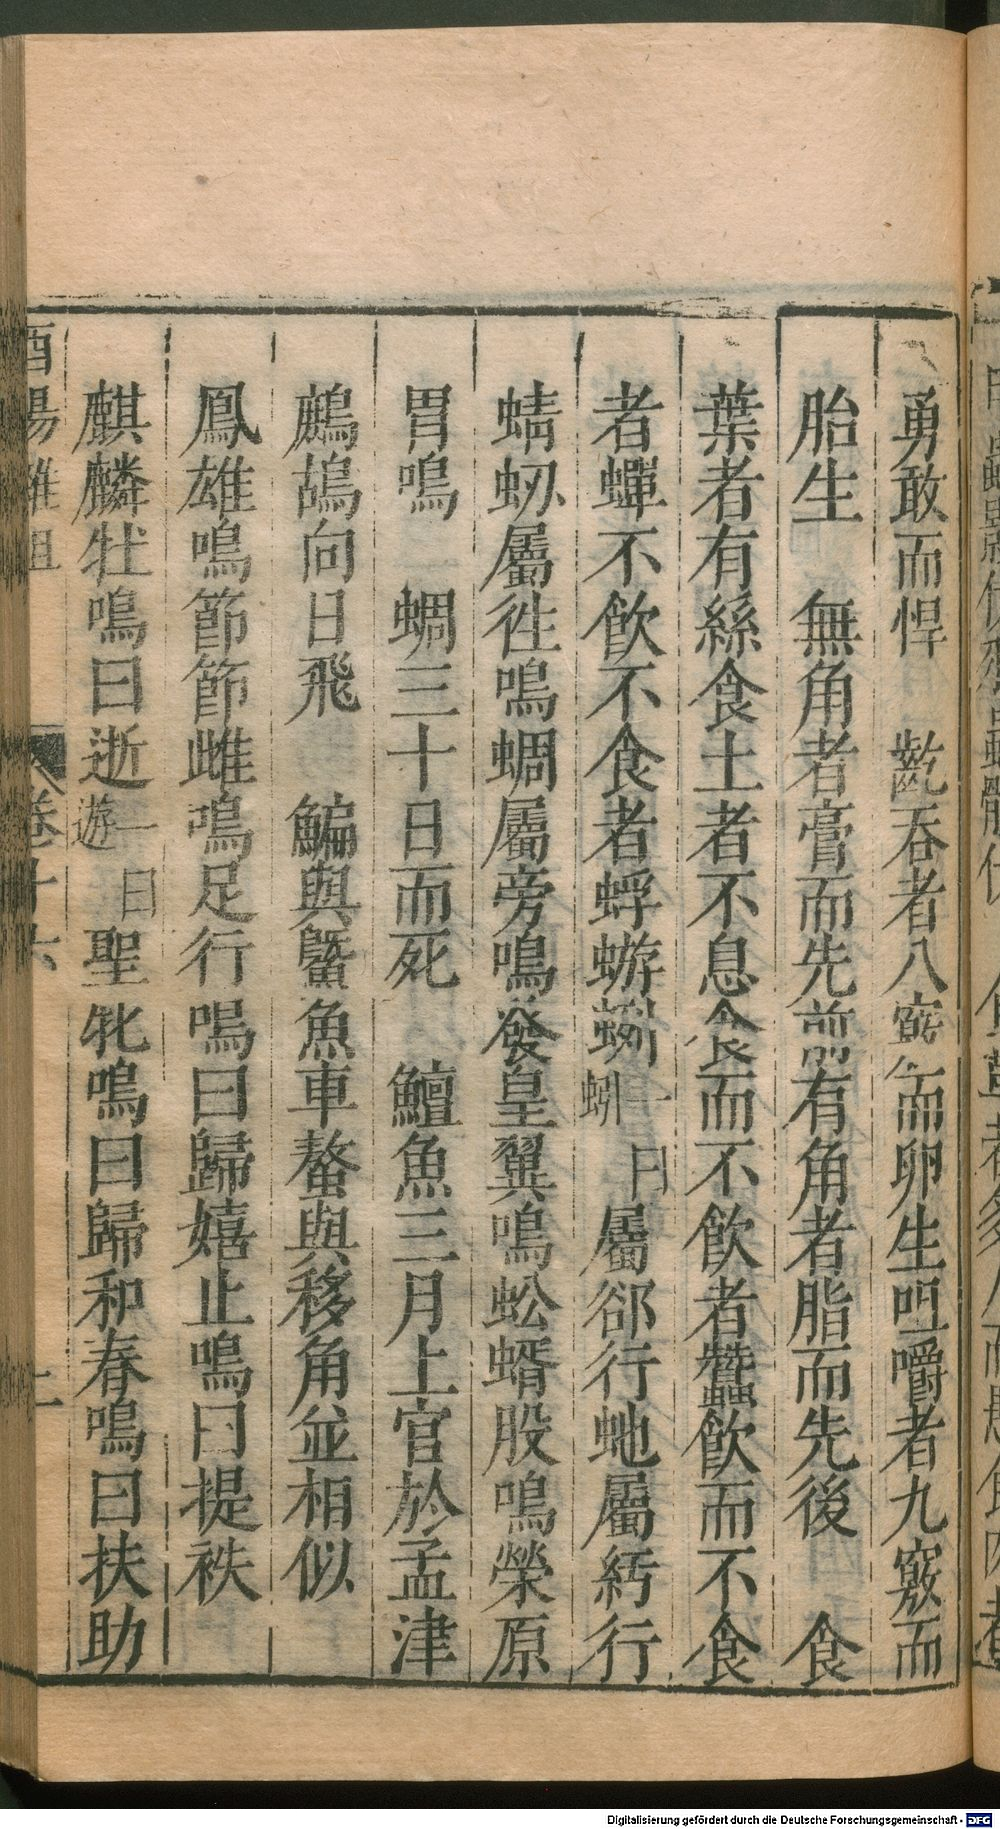 勇敢而悍　齕吞者八竅而卵生咀嚼者九竅而
胎生　無角者膏而先前有角者脂而先後　食
葉者有絲食土者不息食而不飲者蠶飲而不食
者蟬不飲不食者蜉蝣蛚一曰蚓屬郤行虵屬紆行
蜻蛚屬徃鳴蜩屬旁鳴發皇翼鳴蚣蝑股鳴榮原
胃鳴　蜩三十日而死　鱣魚三月上官於孟津
鷓鴣向日飛　鯿與鱀魚車螯與移角並相似
鳳雄鳴節節雌鳴足足行鳴曰歸嬉止鳴曰提袂
麒麟牡鳴曰逝一曰遊聖牝鳴曰歸和春鳴曰扶助
酉陽雜俎　卷十六　二
Digitalisierung gefördert durch die Deutsche Forschungsgemeinschaft - DFG